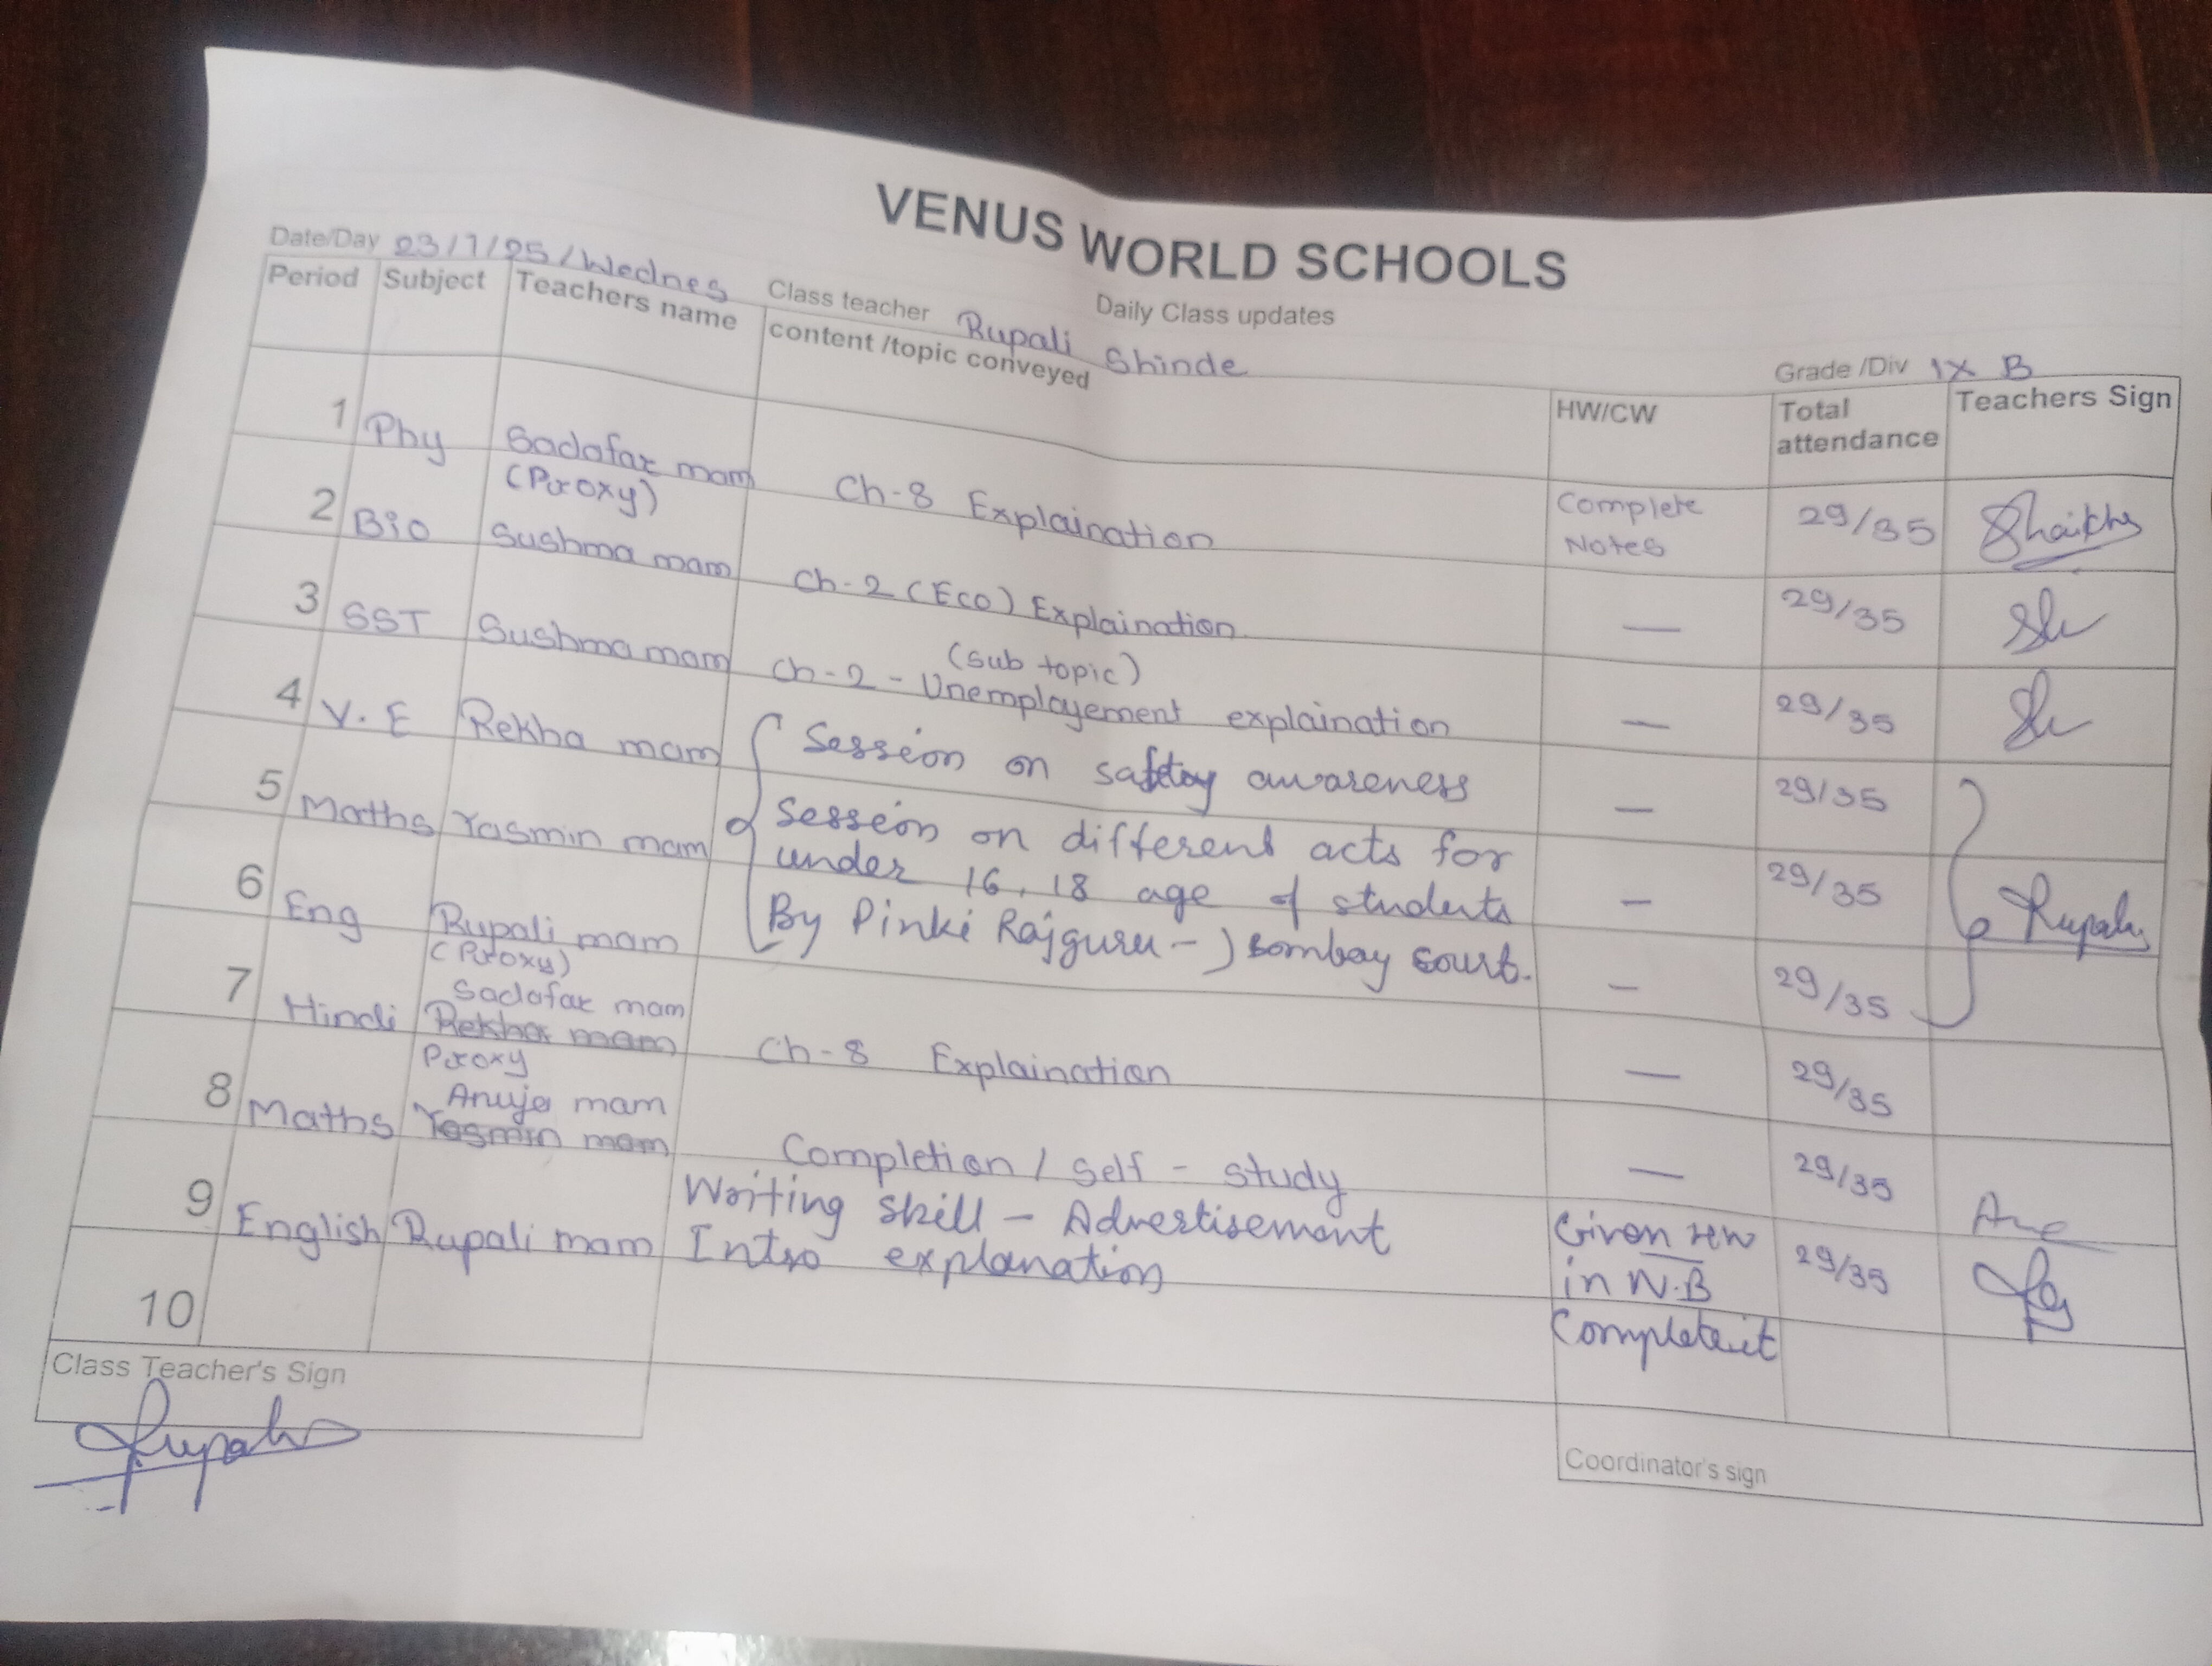 VENUS WORLD SCHOOLS
Daily Class updates
Date/Day 23/7/25/Wednes Class teacher Rupali Shinde Grade /Div IX B
Period Subject Teachers name content /topic conveyed HW/CW Total attendance Teachers Sign
1 Phy Sadafar mam Ch-8 Explaination Complete Notes 29/35 Shaikh
(Proxy)
2 Bio Sushma mam Ch-2 (Eco) Explaination — 29/35
3 SST Sushma mam Ch-2 - Unemployement explaination — 29/35
(sub topic)
4 V.E Rekha mam Session on safety awareness — 29/35
5 Maths Yasmin mam Session on different acts for
under 16, 18 age of students — 29/35 Rupali
6 Eng Rupali mam By Pinki Rajguru - Bombay court. — 29/35
(Proxy)
Sadafar mam
7 Hindi Rekha mam Ch-8 Explaination — 29/35
Proxy
Anuja mam
8 Maths Yasmin mam Completion / Self - study — 29/35
9 English Rupali mam Writing skill - Advertisement
Intro explanation Given HW
in N.B
Complete it 29/35
10
Class Teacher's Sign
Rupali
Coordinator's sign